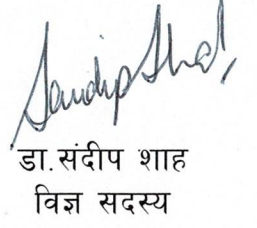 Sandip Shah
डा.संदीप शाह
विज्ञ सदस्य